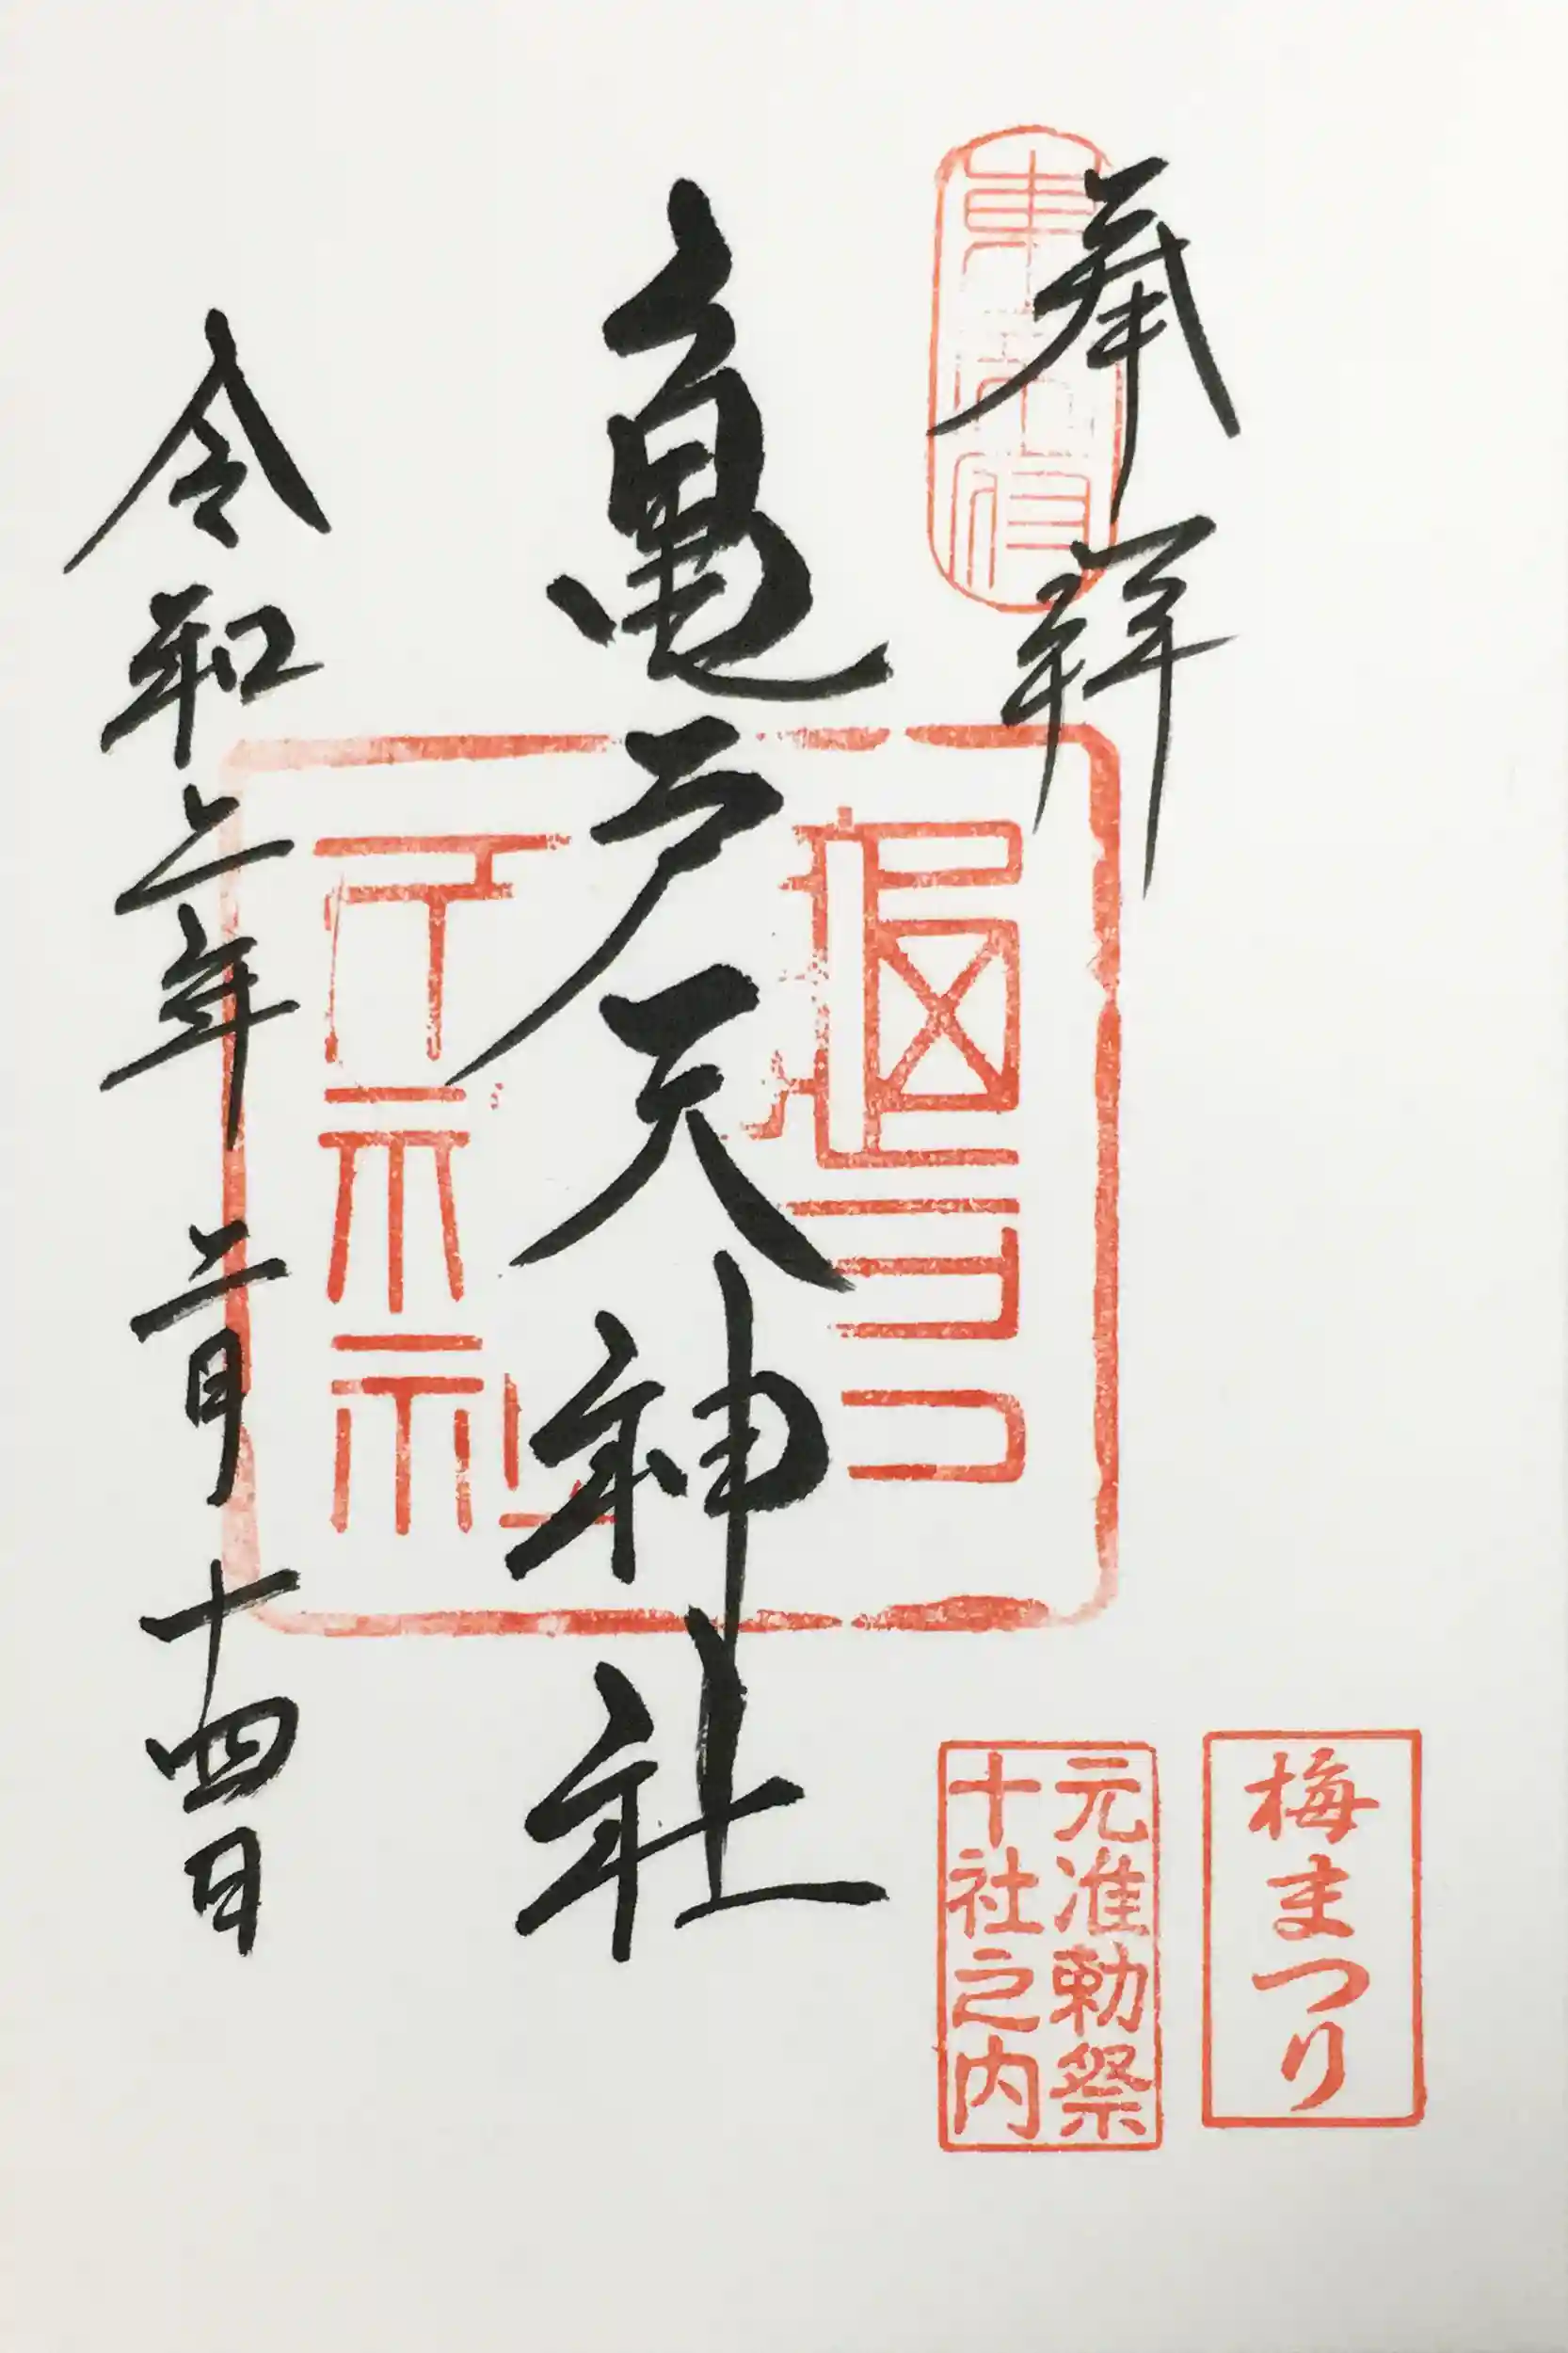 奉拝
梅まつり
元准勅祭
十社之内
亀戸天神社
令和二年二月十四日